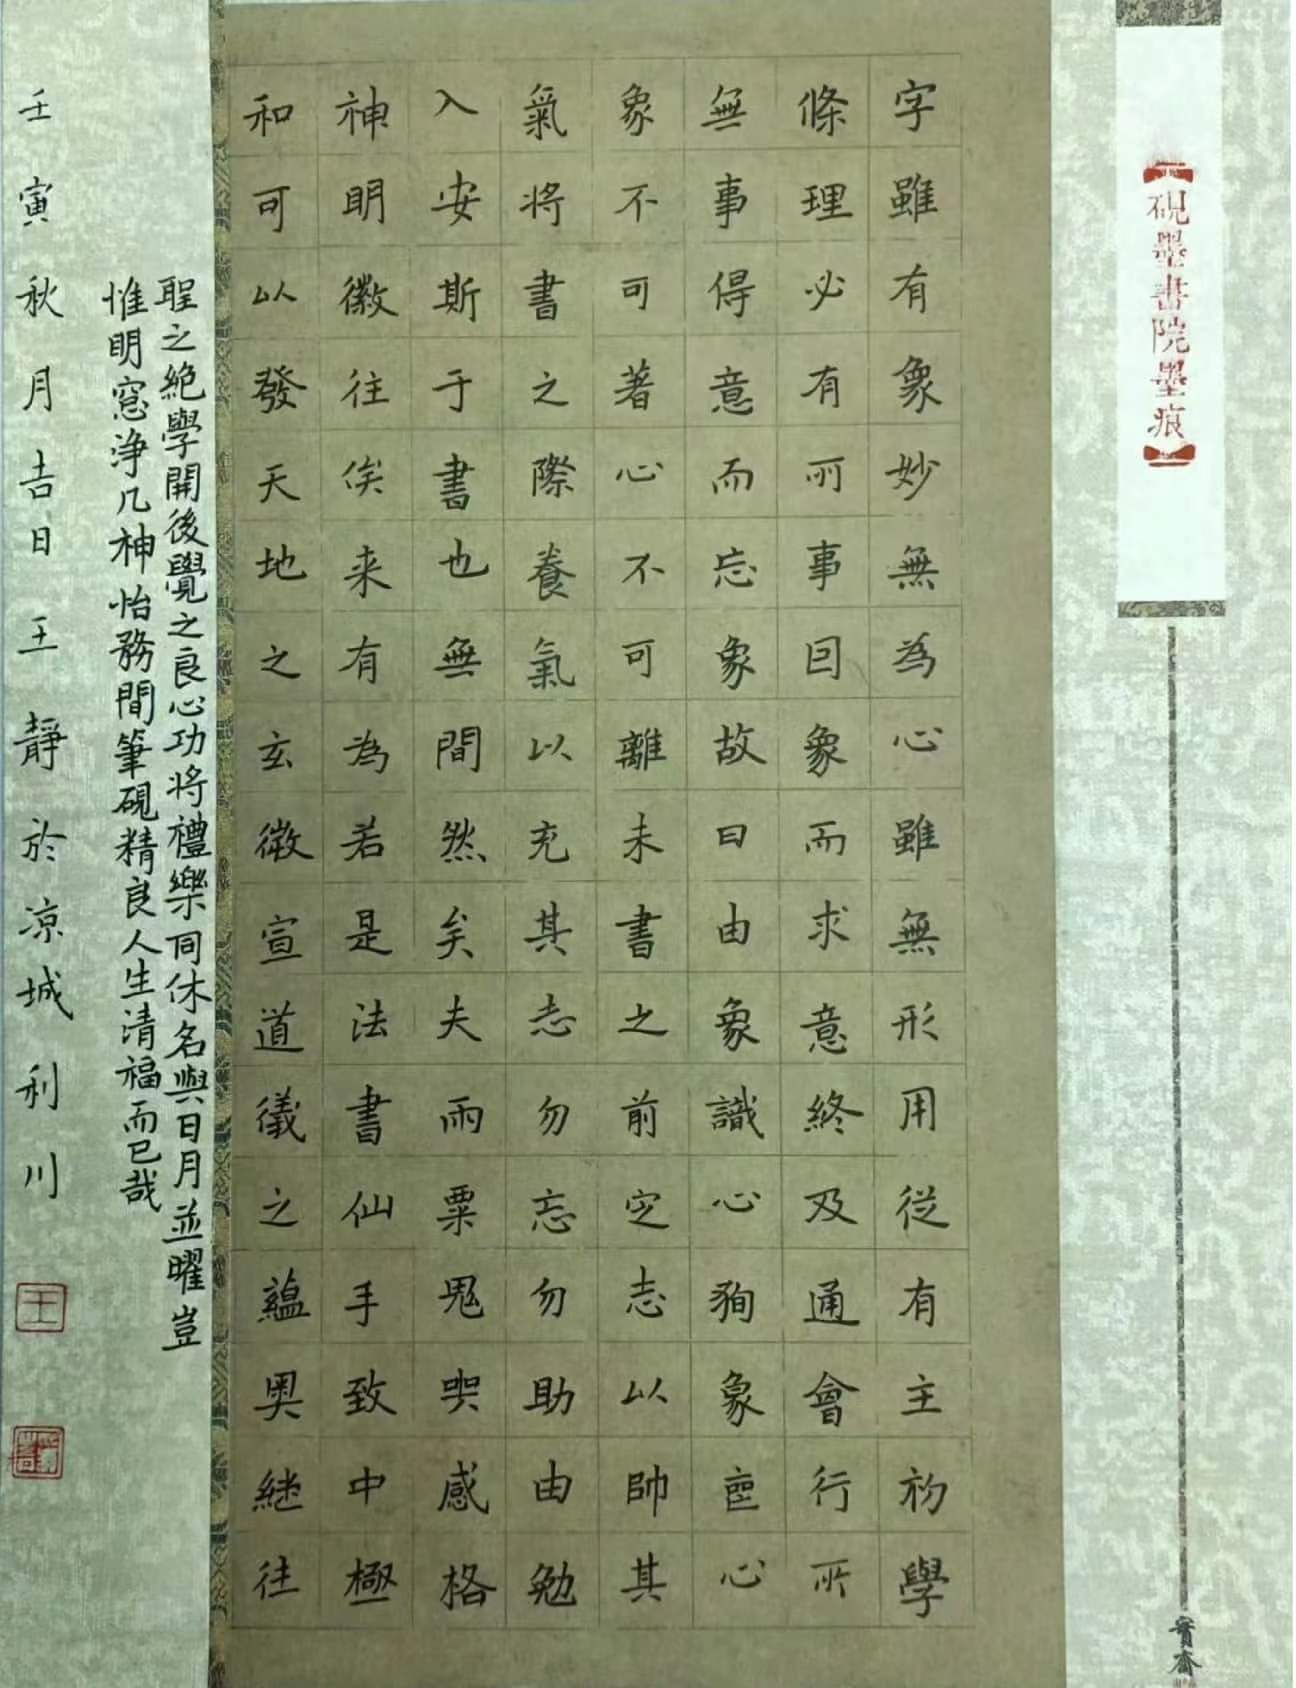 硯墨書院墨痕
字雖有象妙無為心雖無形用從有主初學
條理必有所事因象而求意終及通會行所
無事得意而忘象故曰由象識心狥象䘮心
象不可著心不可離未書之前定志以帥其
氣將書之際養氣以充其志勿忘勿助由勉
入安斯于書也無間然矣夫雨粟鬼哭感格
神明徽往俟来有為若是法書仙手致中極
和可以發天地之玄微宣道儀之蘊奧繼往
聖之絶學開後覺之良心功將禮樂同休名與日月並曜豈
惟明窓浄几神怡務間筆硯精良人生清福而已哉
壬寅秋月吉日王靜於凉城利川
王
寳齋